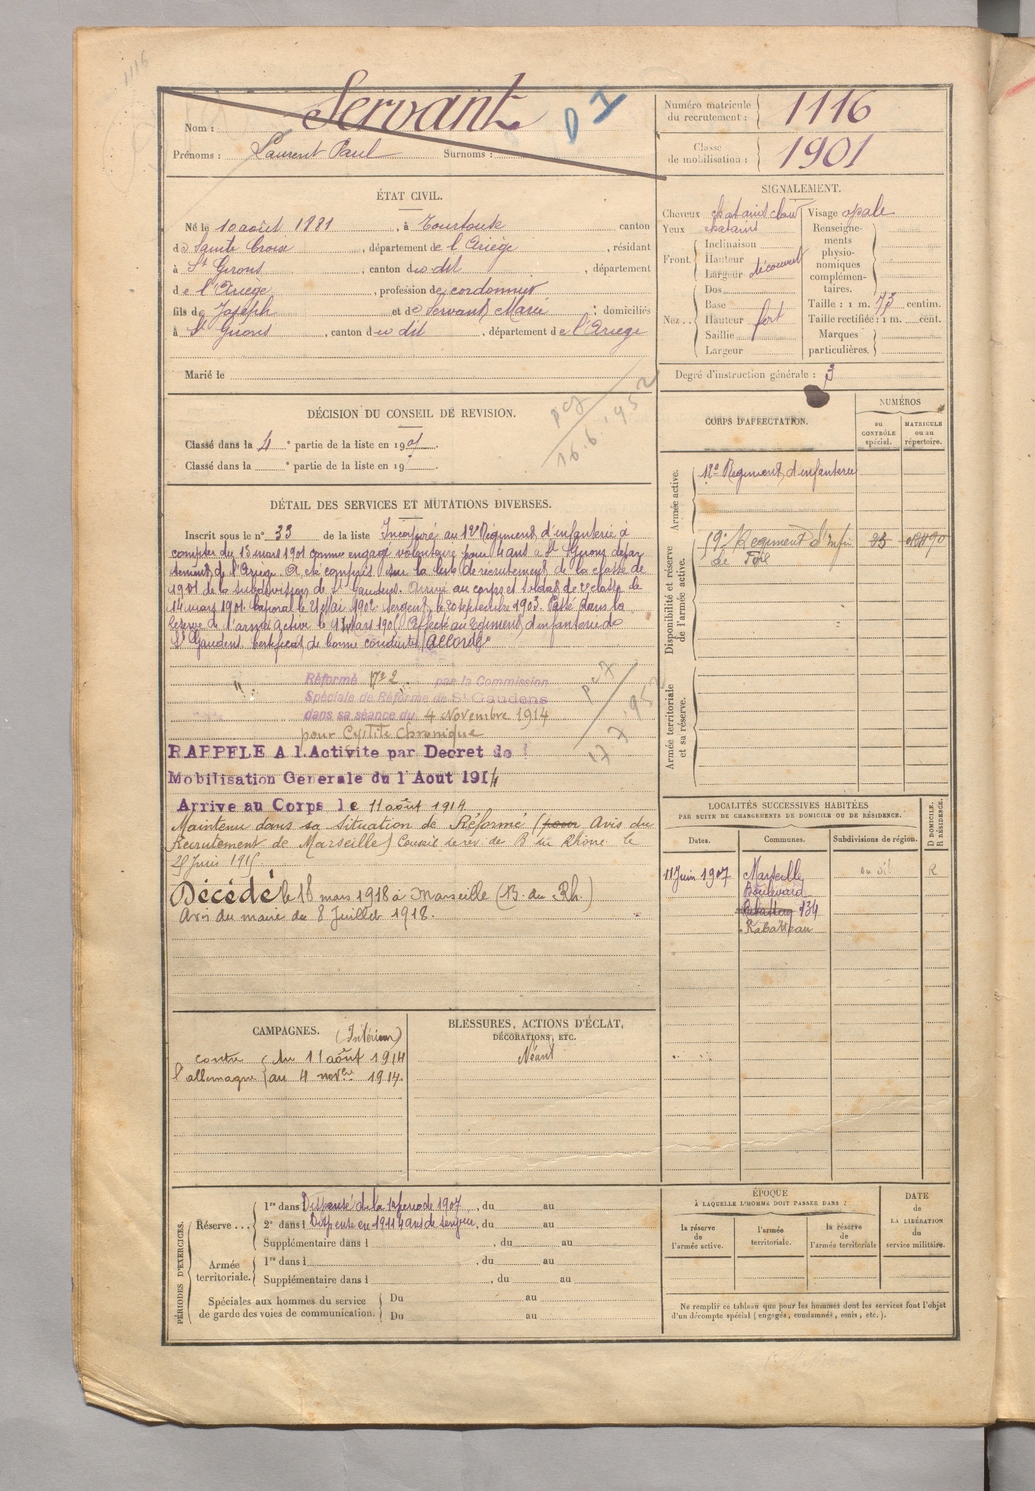 1116
Nom : Servant
D 1
Prénoms : Laurent Paul Surnoms :
Numéro matricule du recrutement : 1116
Classe de mobilisation : 1901
ÉTAT CIVIL.
Né le 10 août 1881, à Tourtouse canton
de Sainte Croix, département de l'Ariège, résidant
à St Girons, canton du dit, département
de l'Ariège, profession de cordonnier
fils de Joseph et de Servant Marie ; domiciliés
à St Girons, canton du dit, département de l'Ariège
Marié le
SIGNALEMENT.
Cheveux chatains clair
Yeux chatains
Front Inclinaison
Hauteur
Largeur découvert
Nez Dos
Base
Hauteur fort
Saillie
Largeur
Visage ovale
Renseignements physionomiques complémentaires.
Taille : 1 m. 73 centim.
Taille rectifiée : 1 m. cent.
Marques particulières.
Degré d'instruction générale : 3
DÉCISION DU CONSEIL DE REVISION.
Classé dans la 4e partie de la liste en 190
Classé dans la e partie de la liste en 19
16.6.1952
DÉTAIL DES SERVICES ET MUTATIONS DIVERSES.
Inscrit sous le n° 33 de la liste Incorporé au Régiment d'infanterie à
compter du 13 mars 1901 comme engagé volontaire pour 4 ans à St Girons dépar
tement de l'Ariège. A été compris sur la liste de recrutement de la classe de
1901 de la subdivision de St Gaudens. Arrivé au corps et soldat de 2e classe le
14 mars 1901. Caporal le 21 Mai 1902. Sergent le 20 septembre 1903. Passé dans la
réserve de l'armée active le 13 Mars 190 Affecté au Régiment d'infanterie de
St Gaudens. Certificat de bonne conduite accordé
Réformé N° 2 par la Commission
Spéciale de Réforme de St Gaudens
dans sa séance du 4 Novembre 1914
pour Cystite Chronique
RAPPELE A l.Activite par Decret de
Mobilisation Generale du 1 Aout 1914
Arrive au Corps le 11 août 1914
Maintenu dans sa situation de Réformé (pour Avis du
Recrutement de Marseille) Conseil de rév. de B du Rhône le
Juin 1915
Décédé le 18 mars 1918 à Marseille (B. du Rh.)
Avis du maire du 8 Juillet 1918.
CORPS D'AFFECTATION.
NUMÉROS
au CONTRÔLE spécial.
MATRICULE ou au répertoire.
Armée active.
Régiment d'infanterie
Disponibilité et réserve de l'armée active.
59e Régiment d'Infie
de Foix
Armée territoriale et sa réserve.
LOCALITÉS SUCCESSIVES HABITÉES
PAR SUITE DE CHANGEMENTS DE DOMICILE OU DE RÉSIDENCE.
Dates. Communes. Subdivisions de région. D DOMICILE. R RÉSIDENCE.
11 Juin 1907 Marseille R
Boulevard
134
Rabatteau
CAMPAGNES.
(Intérieur)
contre du 11 août 1914
l'allemagne au 4 novbre 1914.
BLESSURES, ACTIONS D'ÉCLAT,
DÉCORATIONS, ETC.
Néant
PÉRIODES D'EXERCICES.
Réserve 1re dans l Dispensé de la 1re période 1907, du au
2e dans l Dispensé en 1911 4 ans de service, du au
Supplémentaire dans l , du au
Armée territoriale. 1re dans l , du au
Supplémentaire dans l , du au
Spéciales aux hommes du service de garde des voies de communication. Du au
Du au
ÉPOQUE
À LAQUELLE L'HOMME DOIT PASSER DANS :
la réserve de l'armée active.
l'armée territoriale.
la réserve de l'armée territoriale
DATE de LA LIBÉRATION du service militaire.
Ne remplir ce tableau que pour les hommes dont les services font l'objet
d'un décompte spécial (engagés, condamnés, omis, etc.).